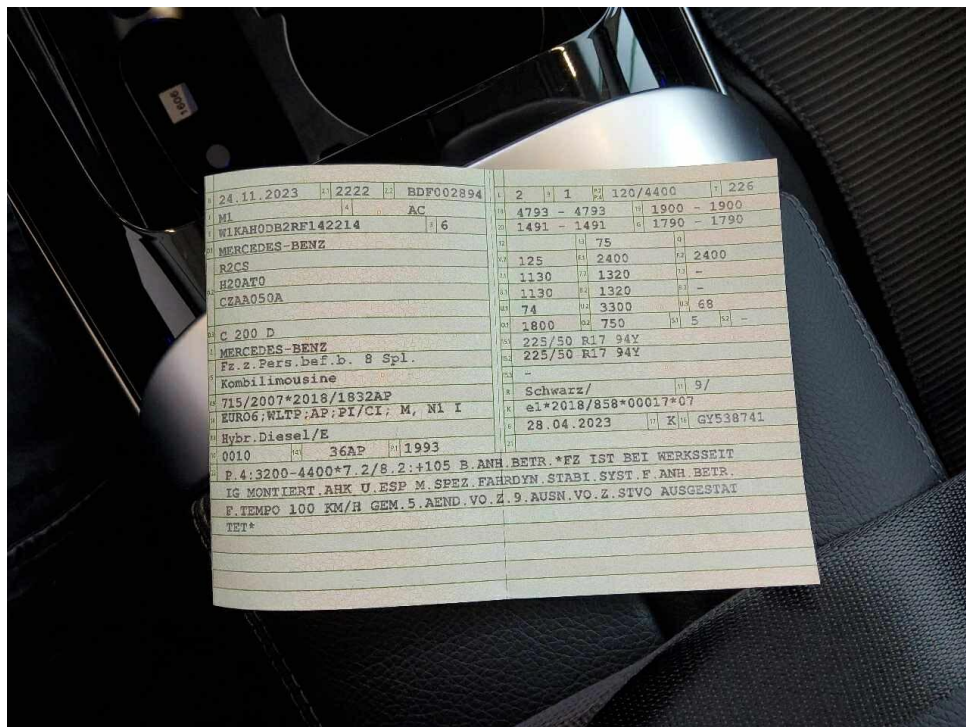 1606
B 24.11.2023 2.1 2222 2.2 BDF002894
J M1 4 AC
E W1KAH0DB2RF142214 3 6
D.1 MERCEDES-BENZ
R2CS
D.2 H20AT0
CZAA050A
D.3 C 200 D
2 MERCEDES-BENZ
5 Fz.z.Pers.bef.b. 8 Spl.
Kombilimousine
715/2007*2018/1832AP
14 EURO6;WLTP;AP;PI/CI; M, N1 I
Hybr.Diesel/E
10 0010 14.1 36AP P.1 1993
L 2 9 1 P.2 P.4 120/4400 T 226
18 4793 - 4793 19 1900 - 1900
20 1491 - 1491 G 1790 - 1790
12 13 75 Q
V.7 125 F.1 2400 F.2 2400
7.1 1130 7.2 1320 7.3 -
8.1 1130 8.2 1320 8.3 -
U.1 74 U.2 3300 U.3 68
O.1 1800 O.2 750 S.1 5 S.2 -
15.1 225/50 R17 94Y
15.2 225/50 R17 94Y
15.3 -
R Schwarz/ 11 9/
K e1*2018/858*00017*07
6 28.04.2023 17 K 16 GY538741
21
22 P.4:3200-4400*7.2/8.2:+105 B.ANH.BETR.*FZ IST BEI WERKSSEIT
IG MONTIERT.AHK U.ESP M.SPEZ.FAHRDYN.STABI.SYST.F.ANH.BETR.
F.TEMPO 100 KM/H GEM.5.AEND.VO.Z.9.AUSN.VO.Z.STVO AUSGESTAT
TET*